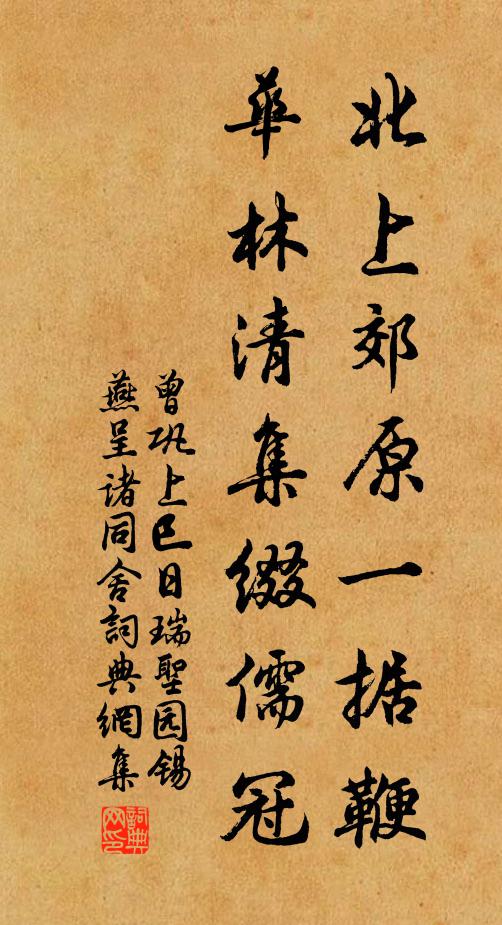 北上郊原一据鞭
華林清集缀儒冠
曾巩上巳日瑞聖园锡
燕呈诸同舍詞典網集
詞典网印